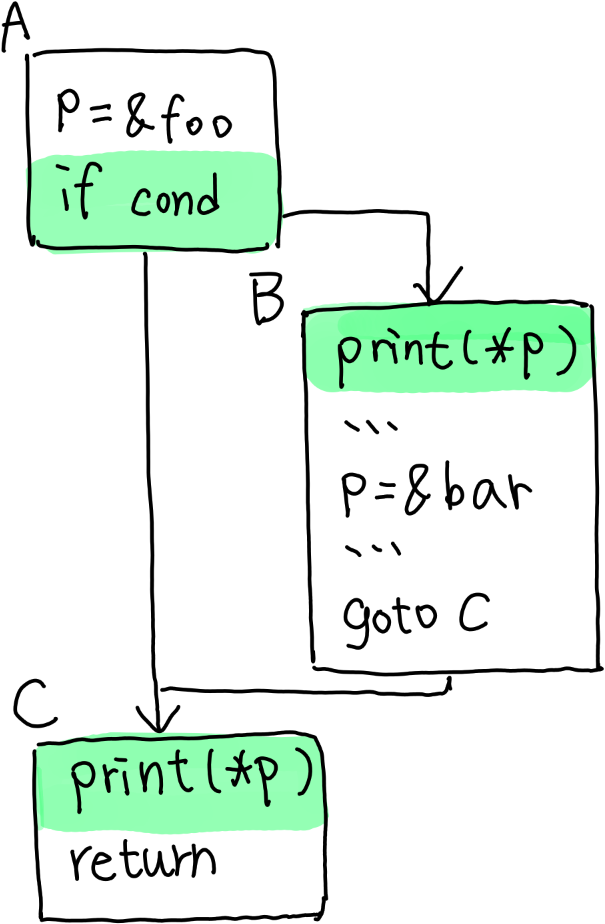 A
P=&foo
if cond
B
print(*p)
...
P=&bar
...
goto C
C
print(*p)
return